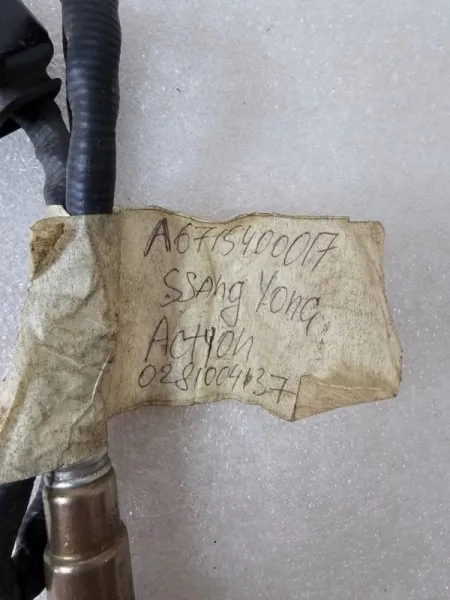 A6715400017
SSAng Yong
Actyon
0281004137